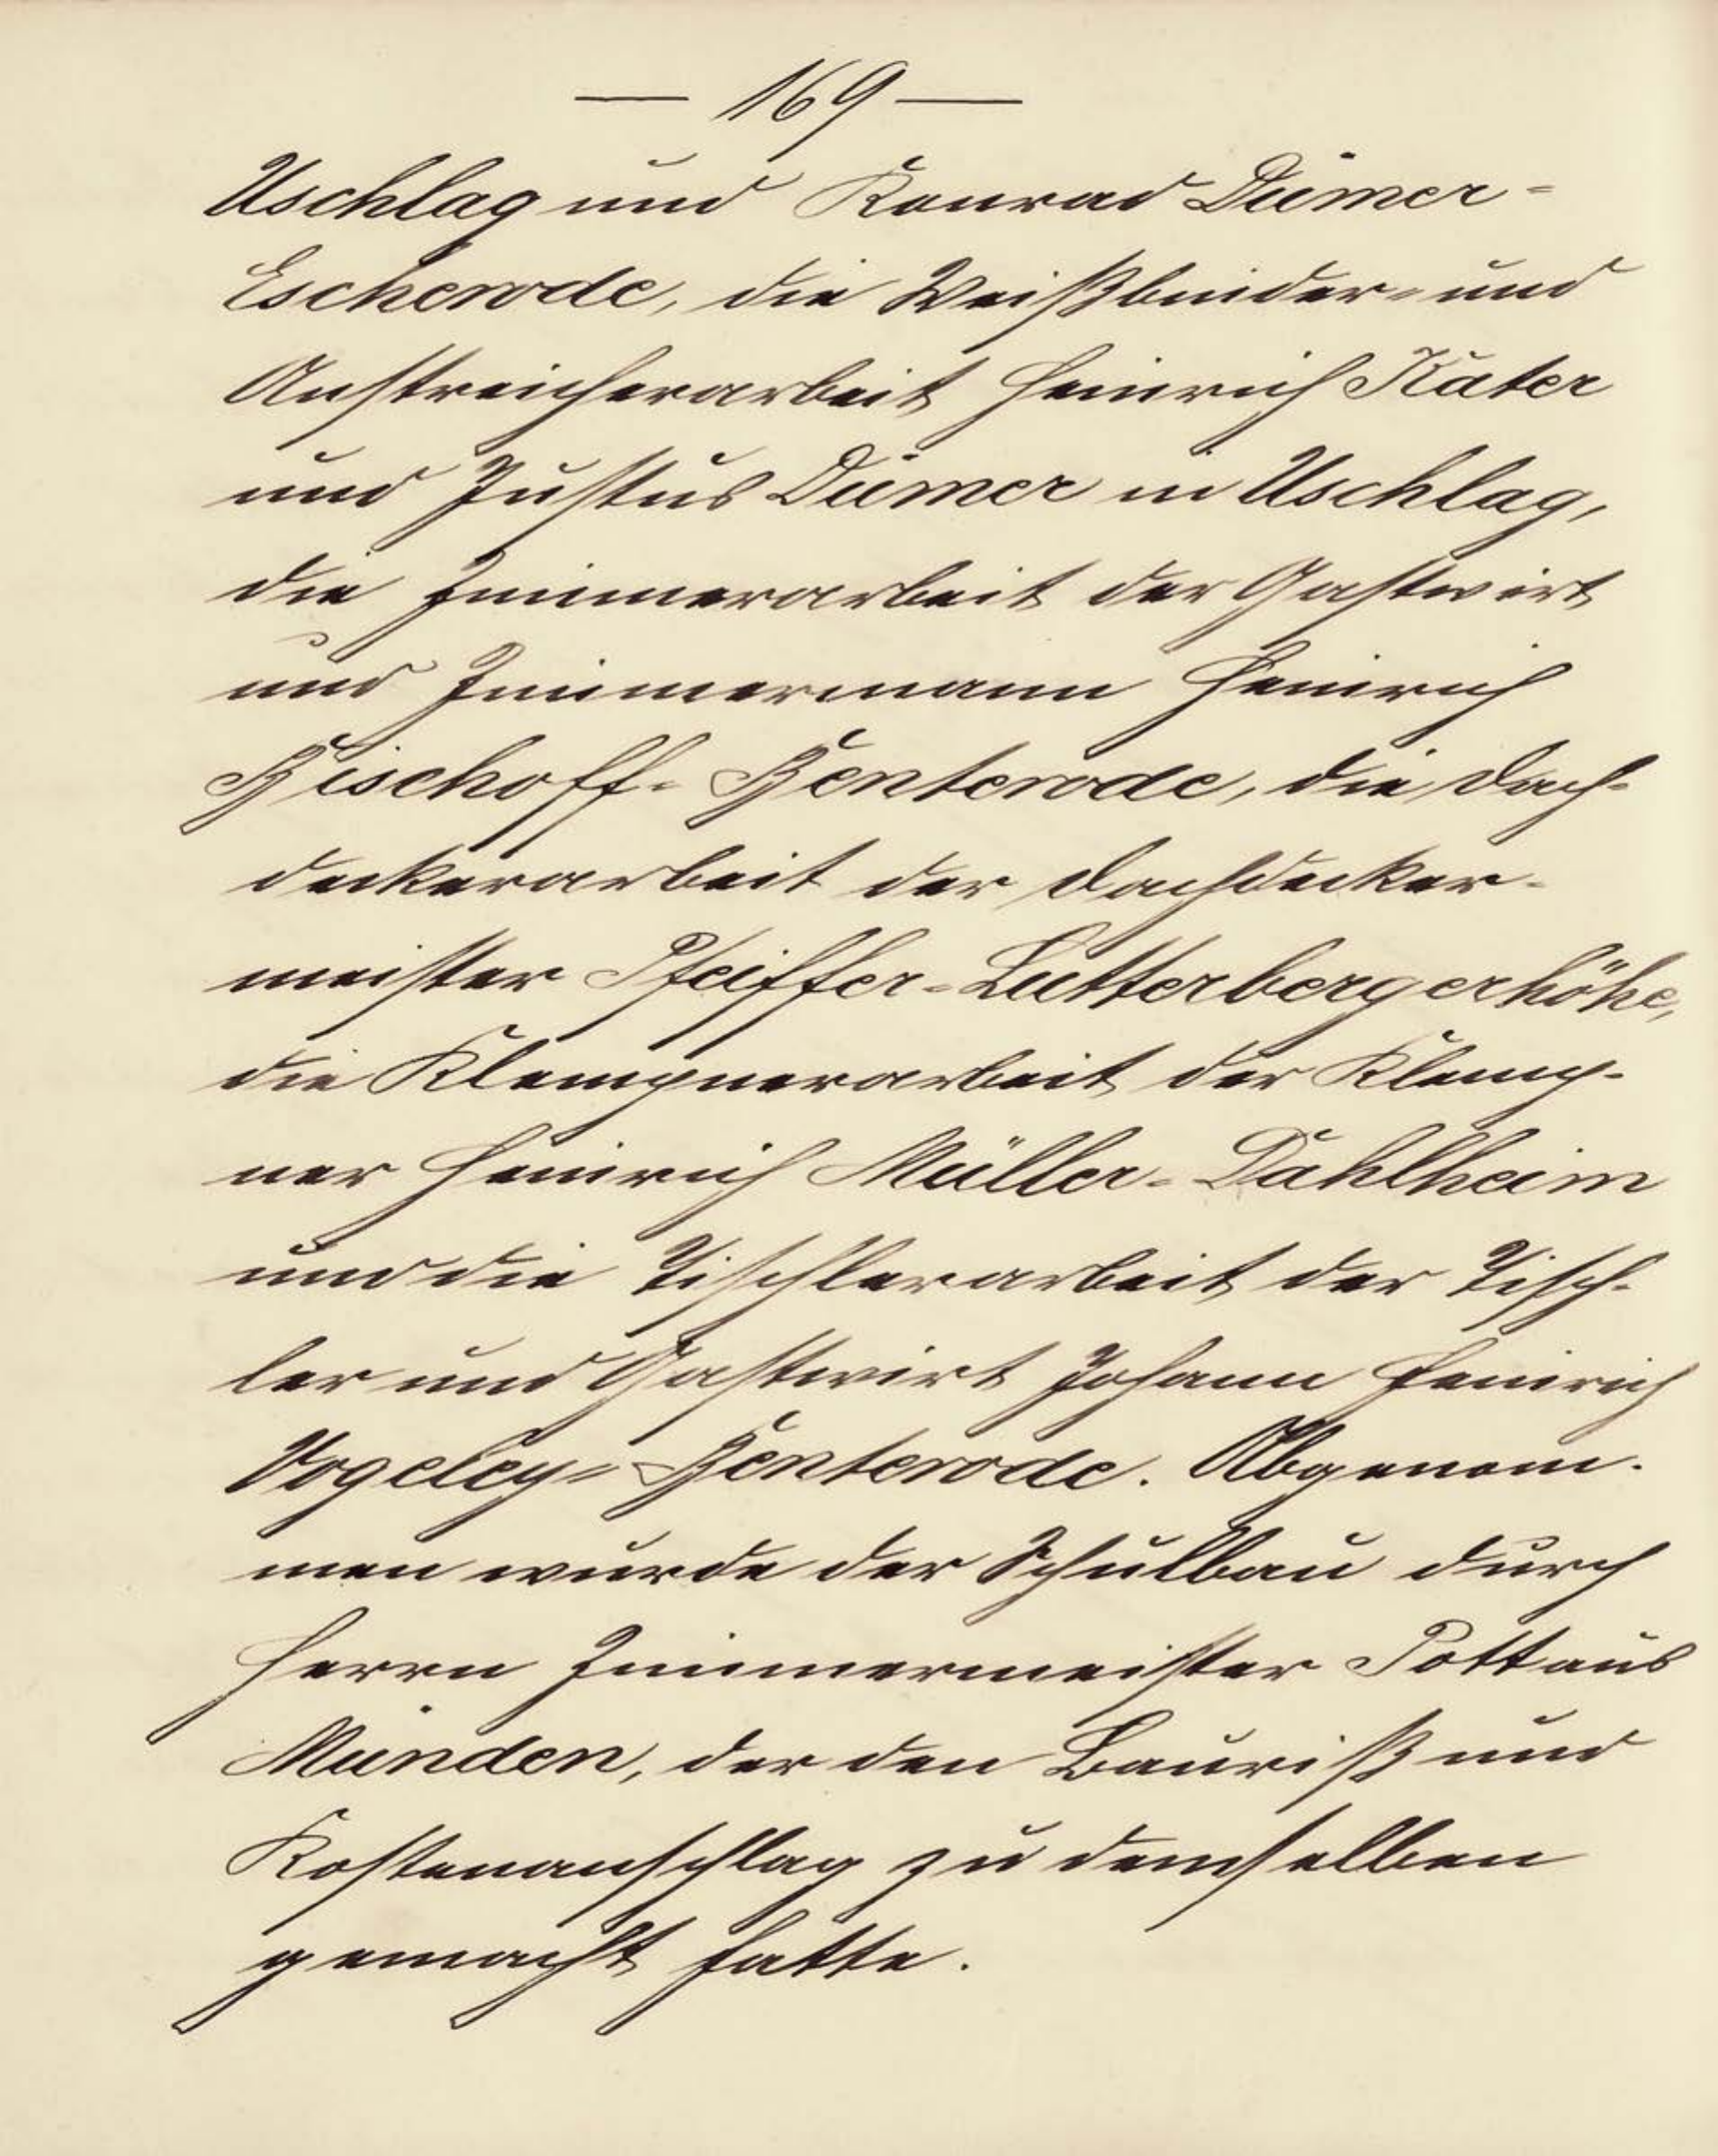 — 169 —
Uschlag und Konrad Dümer-
Escherode, die Weißbinder- und
Anstreicherarbeit Heinrich Käter
und Justus Dümer in Uschlag,
die Zimmerarbeit der Gastwirt
und Zimmermann Heinrich
Bischoff-Benterode, die Dach-
deckerarbeit der Dachdecker-
meister Pfeiffer-Lutterbergerhöhe,
die Klempnerarbeit der Klemp-
ner Heinrich Müller-Dahlheim
und die Tischlerarbeit der Tisch-
ler und Gastwirt Johann Heinrich
Vogeley-Benterode. Abgenom-
men wurde der Schulbau durch
Herrn Zimmermeister Pott aus
Münden, der den Bauriß und
Kostenanschlag zu demselben
gemacht hatte.